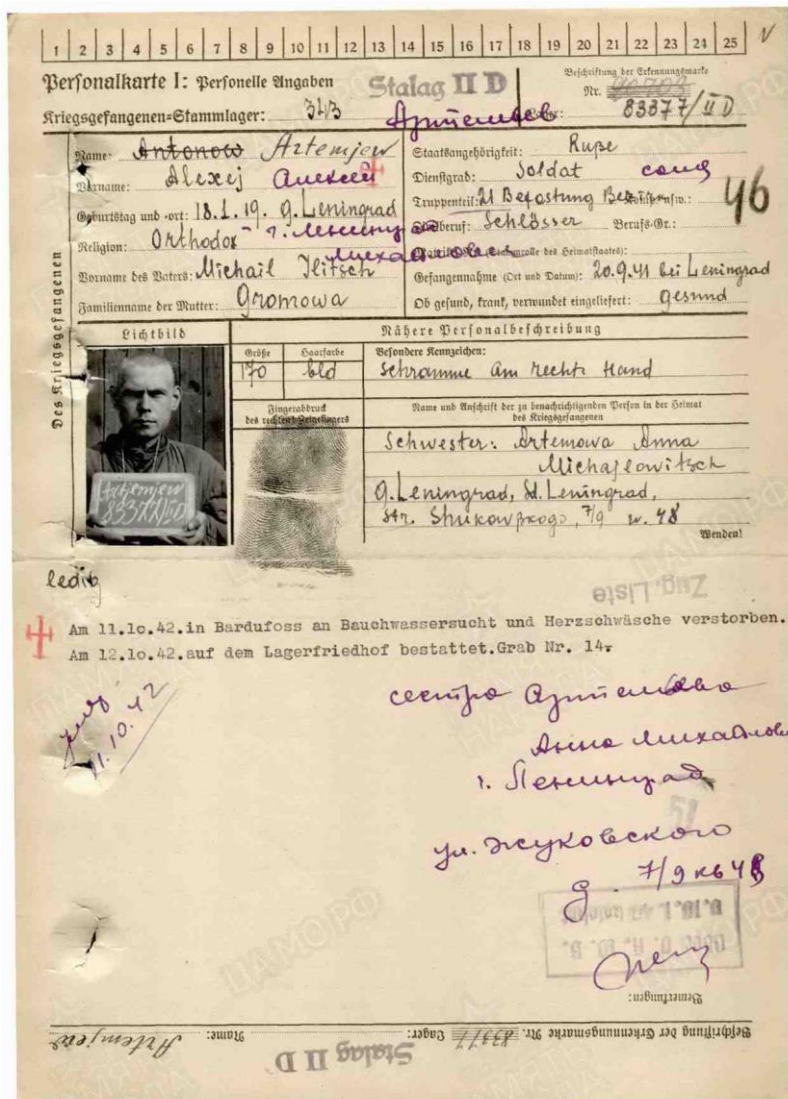 1 2 3 4 5 6 7 8 9 10 11 12 13 14 15 16 17 18 19 20 21 22 23 24 25
Personalkarte I: Personelle Angaben
Stalag II D
Beschriftung der Erkennungsmarke
Nr.
Kriegsgefangenen=Stammlager: 343
Артемьев
83377/II D
Des Kriegsgefangenen
Name: Antonow Artemjew
Vorname: Alexej Алексей
Geburtstag und -ort: 18.1.19. G. Leningrad
г. Ленинград
Religion: Orthodox
Михайлович
Vorname des Vaters: Michail Ilitsch
Familienname der Mutter: Gromowa
Staatsangehörigkeit: Ruße
Dienstgrad: Soldat солд
Truppenteil: 21 Befostung
46
Schlösser Berufs-Gr.:
Gefangennahme (Ort und Datum): 20.9.41 bei Leningrad
Ob gesund, krank, verwundet eingeliefert: gesund
Lichtbild
Nähere Personalbeschreibung
Größe
Haarfarbe
Besondere Kennzeichen:
170
bld
Schramme am recht. Hand
Fingerabdruck
des rechten Zeigefingers
Name und Anschrift der zu benachrichtigenden Person in der Heimat
des Kriegsgefangenen
Schwester: Artemowa Anna
Michajlowitsch
G. Leningrad, Sd. Leningrad,
Str. Shukowßkogo, 7/9 w. 48
Wenden!
Artjemjew
83377/IID
ledig
Zug. Liste
Am 11.10.42.in Bardufoss an Bauchwassersucht und Herzschwäsche verstorben.
Am 12.10.42.auf dem Lagerfriedhof bestattet.Grab Nr. 14.
11.10.42
сестра Артемьева
Анна Михайлов
г. Ленинград
51
ул. Жуковского
д. 7/9 кв 48
Bemerkungen:
Beschriftung der Erkennungsmarke Nr. 83377 Lager: Name: Artemjew
Stalag II D
ЦАМО РФ